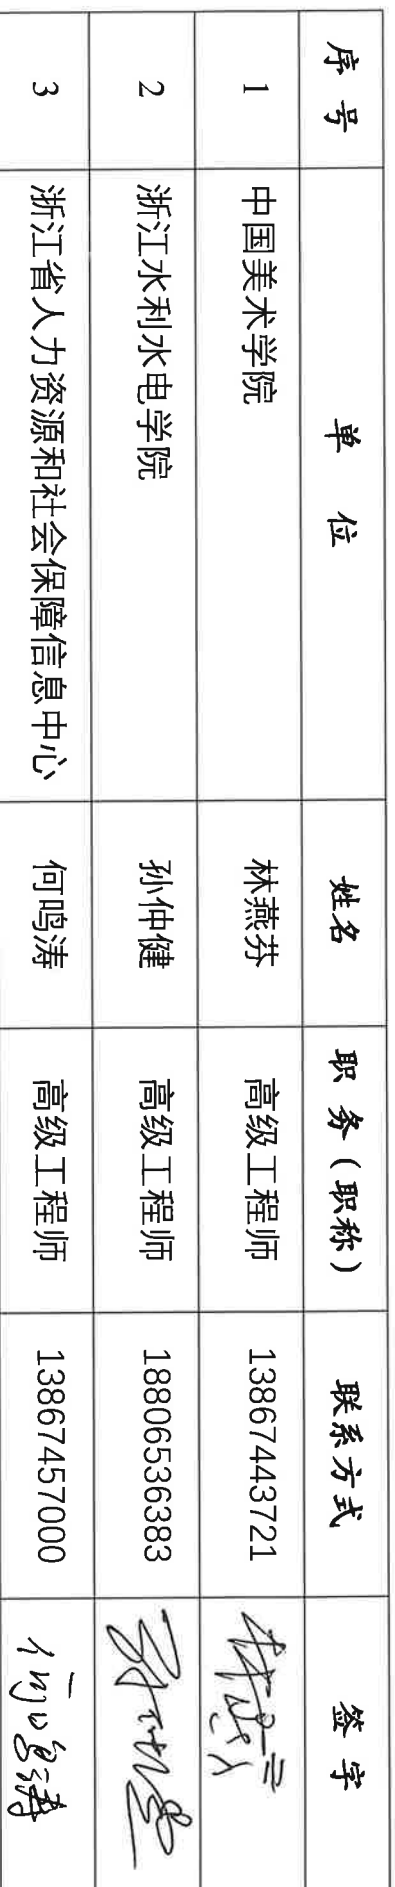 序号 单位 姓名 职务(职称) 联系方式 签字
1 中国美术学院 林燕芬 高级工程师 13867443721
2 浙江水利水电学院 孙仲健 高级工程师 18806536383
3 浙江省人力资源和社会保障信息中心 何鸣涛 高级工程师 13867457000 何鸣涛